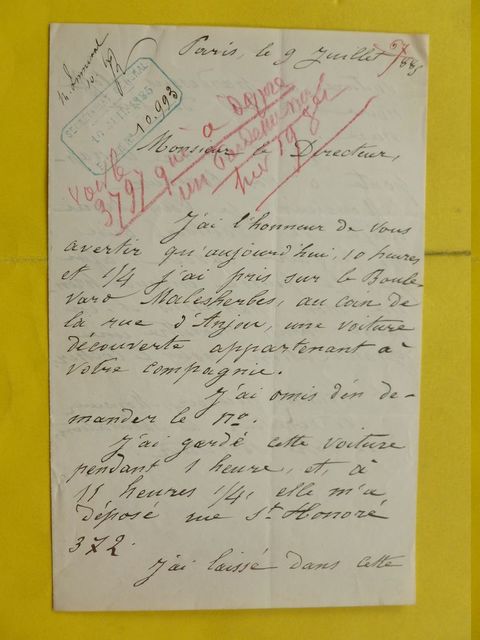 Paris, le 9 Juillet 1885
10.993
Monsieur le Directeur,
Voiture
3797 qui a déposé
un
J'ai l'honneur de vous
avertir qu'aujourd'hui, 10 heures
et 1/4 j'ai pris sur le Boule-
vard Malesherbes, au coin de
la rue d'Anjou, une voiture
découverte appartenant à
votre compagnie.
J'ai omis d'en de-
mander le no.
J'ai gardé cette voiture
pendant 1 heure, et, à
11 heures 1/4, elle m'a
déposé rue St Honoré
372.
J'ai laissé dans cette